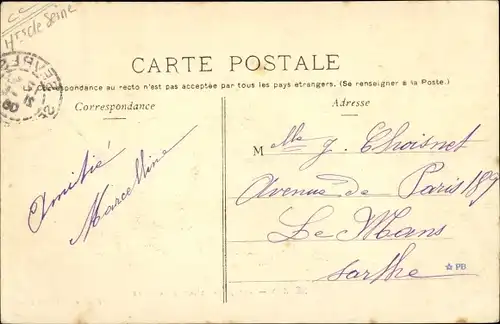 Hts de Seine
CARTE POSTALE
Correspondance au recto n'est pas acceptée par tous les pays étrangers. (Se renseigner à la Poste.)
Correspondance
Amitié
Marcelline
Adresse
Mlle J. Choisnet
Avenue de Paris 189
Le Mans
Sarthe
PB